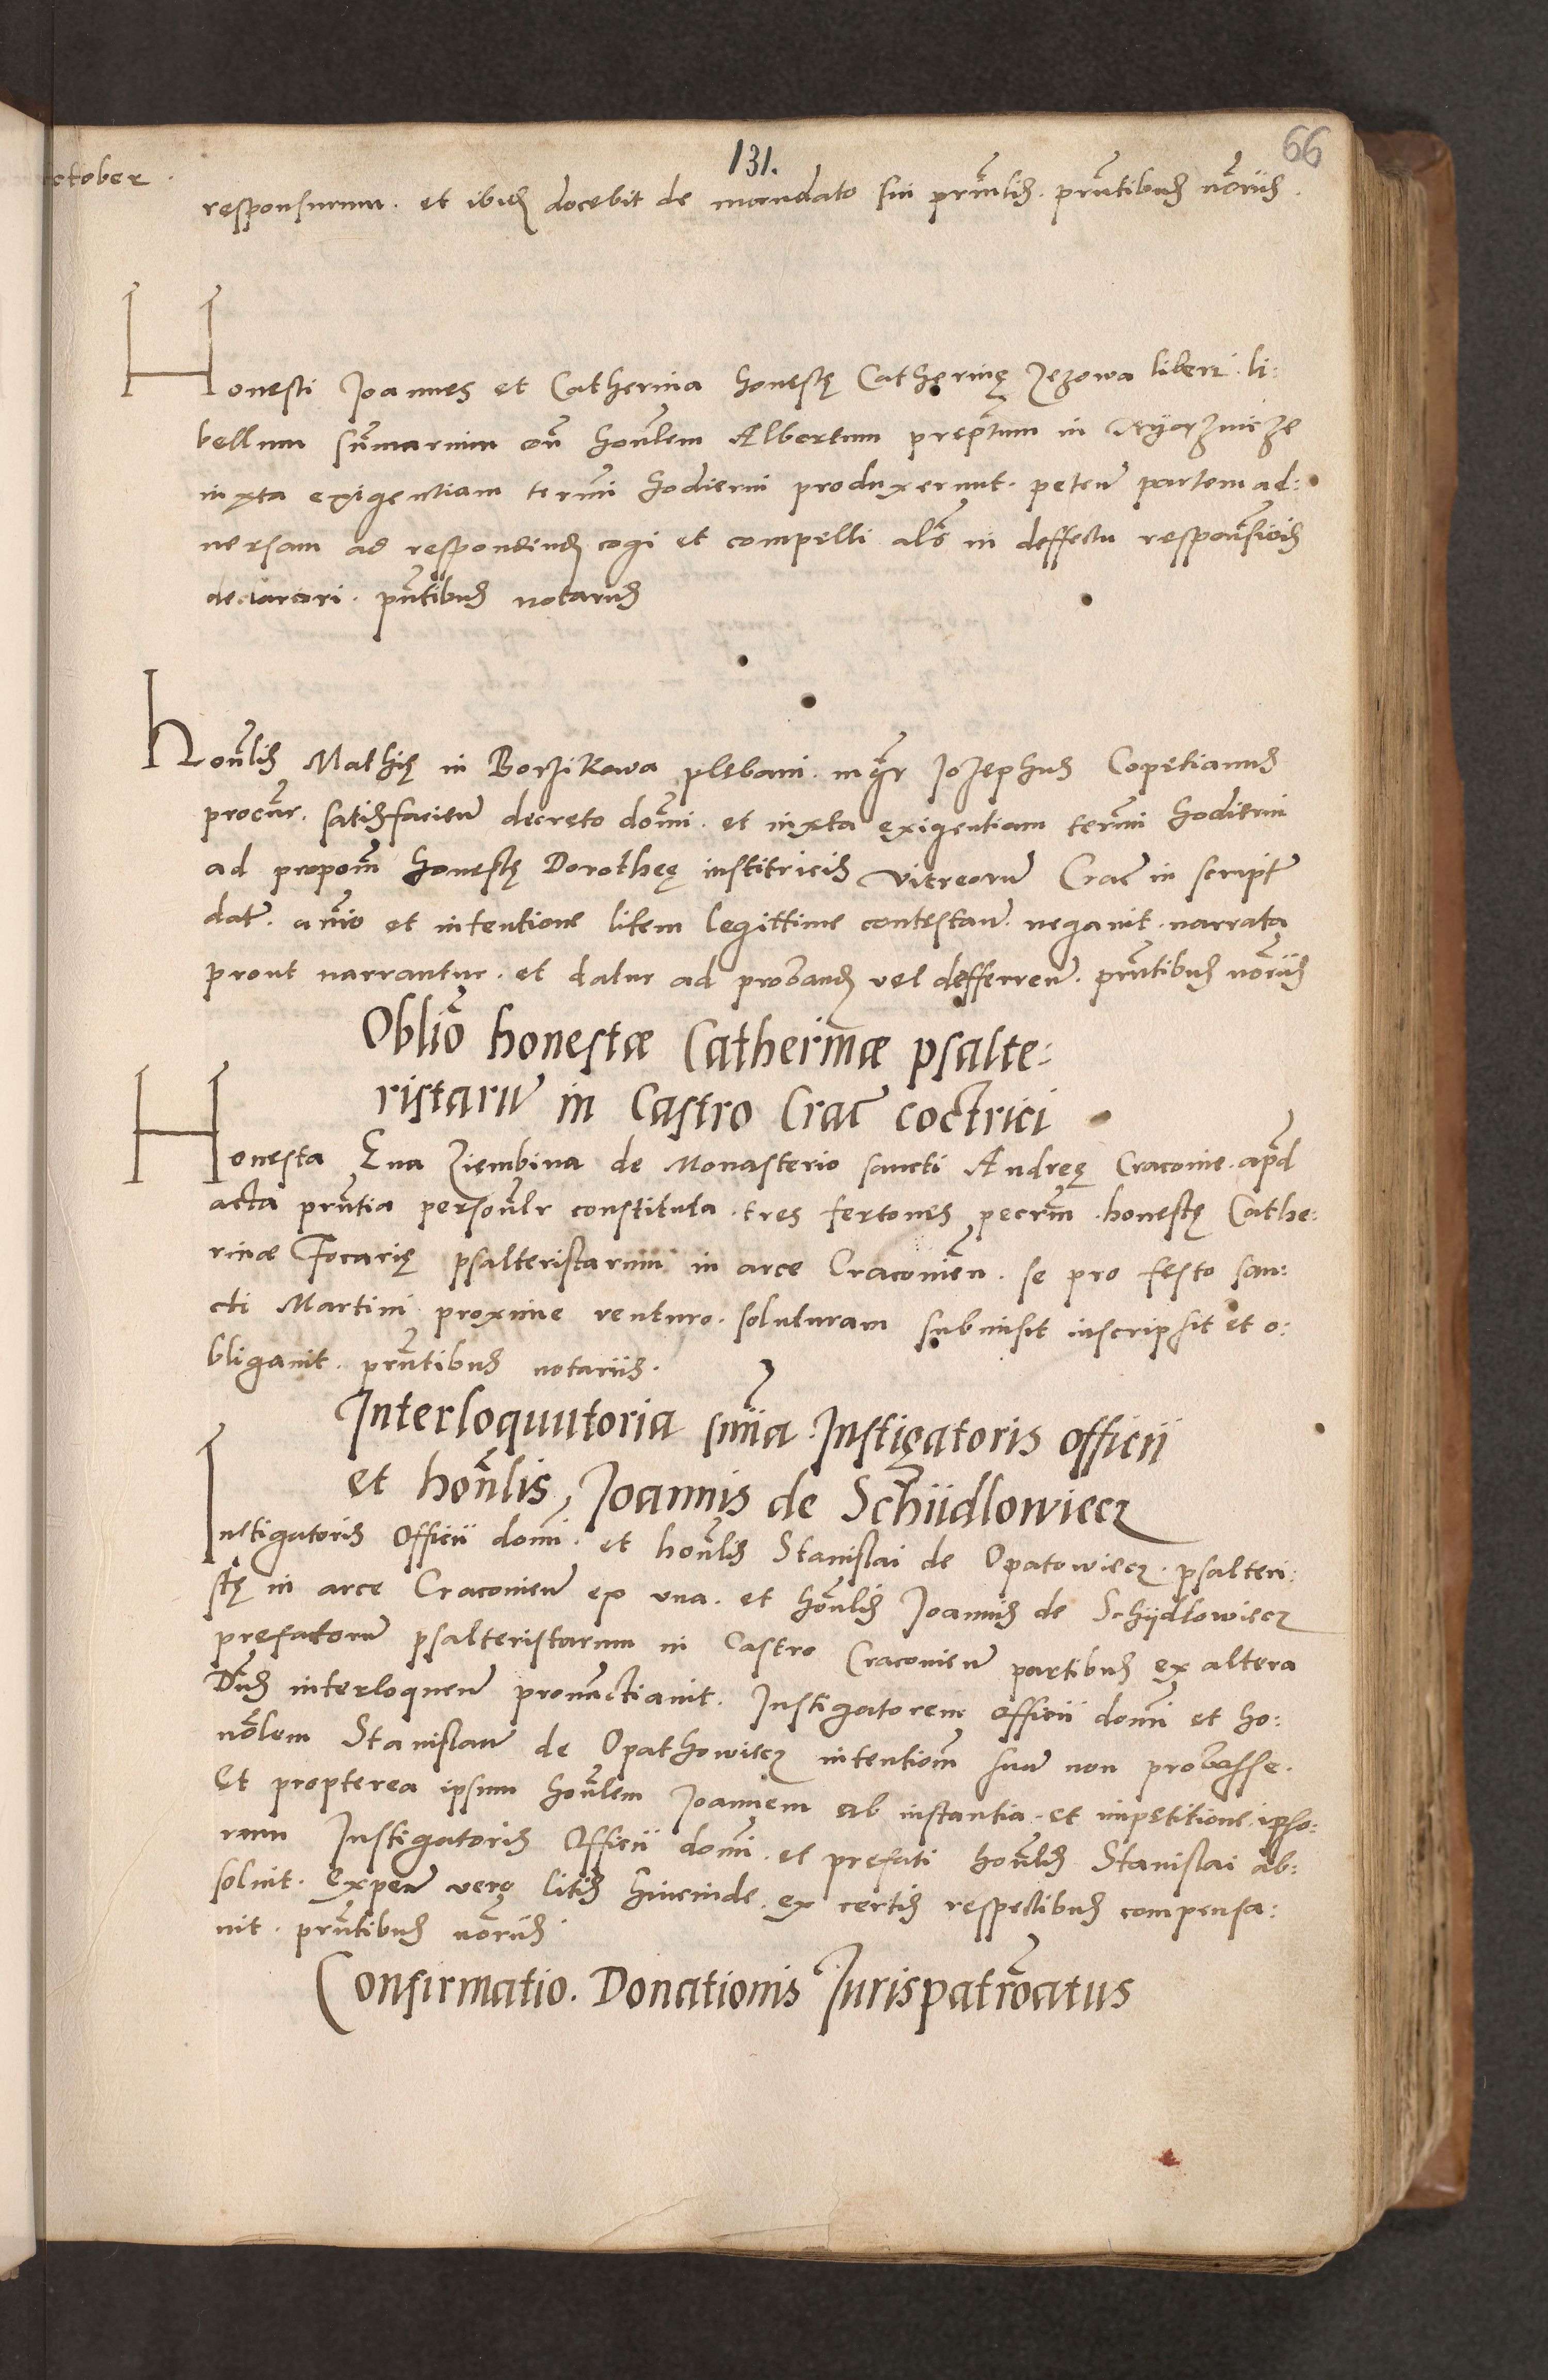 66
131.
ctober.
responsurum. et ibid docebit de mandato sui prīnlis. prn̄tibus nōriis.
Honesti Joannes et Catherina honestę Catherinę Jezowa liberi. li:
bellum sum̄arium con̄ honl̄em Albertum prep̄tum in
iuxta exigentiam term̄i hodierni produxerunt. peten̄ partem ad:
uersam ad respondend cogi et compelli als̄ in deffectu responsiois
declarari. pn̄tibus notariis
honl̄is Mathię in Borzikawa plebani. mḡr Jozephus Copetianus
procur̄. satisfacien̄ decreto dom̄i. et iuxta exigentiam term̄i hodierni
ad propom̄ honestę Dorotheę institricis vitreorum̄ Crac̄ in script̄
dat̄. anīo et intentione litem legittime contestan̄. negauit. narrata
prout narrantur. et datur ad proband vel defferren̄. prn̄tibus nōriis
Obliō honestæ Catherinæ psalte:
ristarum̄ in Castro Crac̄ coctrici
Honesta Eua Ziembina de Monasterio sancti Andreę Cracouie. apd̄
acta prn̄tia personl̄r constituta. tres fertones pecr̄m. honestę Cathe:
rinæ Focarię psalteristarum in arce Cracouien̄. se pro festo san:
cti Martini proxime venturo. soluturam submisit inscripsit et o:
bligauit. prn̄tibus notariis.
Interloquutoria snīia Instigatoris officii
et honl̄is Joannis de Schiidlowiecz
Instigatoris Officii domī. et honl̄is Stanislai de Opatowiecz. psalteri:
stę in arce Cracouien̄ ex vna. et honl̄is Joannis de Schijdlowiecz
prefatorum̄ psalteristarum in Castro Cracouien̄ partibus ex altera
Dn̄s interloquen̄ pronunctiauit. Instigatorem officii domī et ho:
nōlem Stanislaum̄ de Opathowiecz intentiom̄ suam̄ non probasse.
Et propterea ipsum honl̄em Joannem ab instantia. et impetitione. ipso:
rum Instigatoris Officii domī. et prefati honl̄is Stanislai ab:
soluit. Expen̄ vero litis hincinde. ex certis respectibus compensa:
uit. prn̄tibus nōriis.
Confirmatio. Donationis Jurispatrōatus